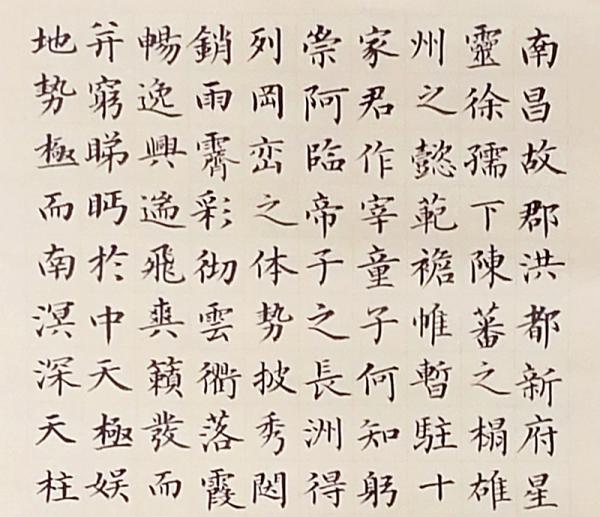 南昌故郡洪都新府星
靈徐孺下陳蕃之榻雄
州之懿範襜帷暫駐十
家君作宰童子何知躬
崇阿臨帝子之長洲得
列岡巒之体勢披秀闼
銷雨霽彩彻雲衢落霞
暢逸興遄飛爽籟發而
并窮睇眄於中天極娱
地勢極而南溟深天柱